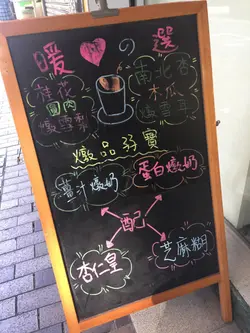 暖❤の選
桂花
圓肉
燉雪梨
南北杏
木瓜
燉雪耳
燉品孖寶
薑汁燉奶
蛋白燉奶
配
杏仁皇
芝麻糊